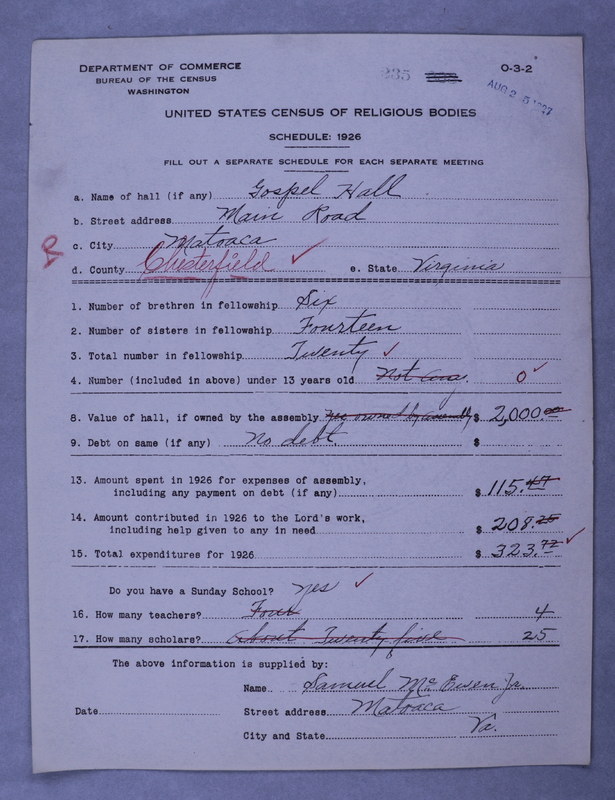 DEPARTMENT OF COMMERCE
BUREAU OF THE CENSUS
WASHINGTON
235
O-3-2
AUG 25 1927
UNITED STATES CENSUS OF RELIGIOUS BODIES
SCHEDULE: 1926
FILL OUT A SEPARATE SCHEDULE FOR EACH SEPARATE MEETING
a. Name of hall (if any) Gospel Hall
b. Street address Main Road
R c. City Matoaca
d. County Chesterfield ✓ e. State Virginia
1. Number of brethren in fellowship Six
2. Number of sisters in fellowship Fourteen
3. Total number in fellowship Twenty ✓
4. Number (included in above) under 13 years old Not any. 0 ✓
8. Value of hall, if owned by the assembly owned by assembly $ 2,000.00
9. Debt on same (if any) no debt. $
13. Amount spent in 1926 for expenses of assembly,
including any payment on debt (if any) $ 115.47
14. Amount contributed in 1926 to the Lord's work,
including help given to any in need $ 208.25
15. Total expenditures for 1926 $ 323.72 ✓
Do you have a Sunday School? yes ✓
16. How many teachers? Four 4
17. How many scholars? About Twenty five 25
The above information is supplied by:
Name Samuel McEwen Jr.
Date Street address Matoaca
City and State Va.